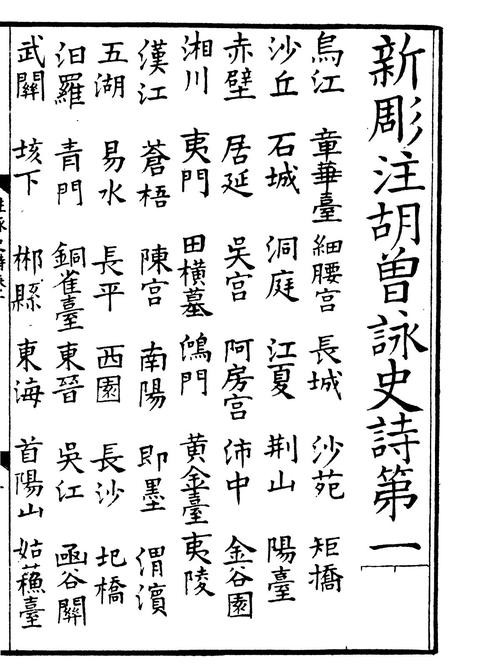 新彫注胡曽詠史詩第一
烏江 章華臺 細腰宫 長城 沙苑 矩橋
沙丘 石城 洞庭 江夏 荆山 陽臺
赤壁 居延 吳宫 阿房宫 沛中 金谷園
湘川 夷門 田橫墓 鴻門 黃金臺 夷陵
漢江 蒼梧 陳宫 南陽 即墨 渭濱
五湖 易水 長平 西園 長沙 圯橋
汨羅 青門 銅雀臺 東晉 吳江 函谷關
武關 垓下 郴縣 東海 首陽山 姑蘓臺